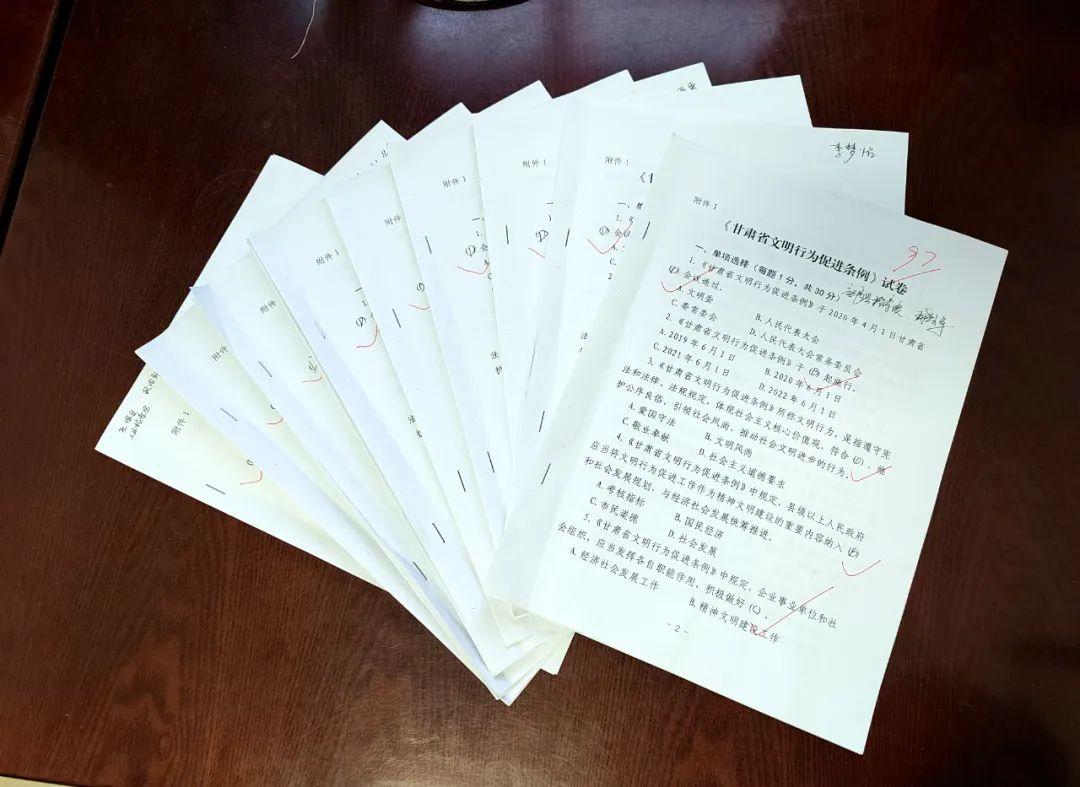 附件 1
《甘肃省文明行为促进条例》试卷
97
一、单项选择（每题1分，共30分）
1.《甘肃省文明行为促进条例》于2020年4月1日甘肃省
(D)会议通过。
A.文明委
B.人民代表大会
C.委常委会
D.人民代表大会常务委员会
2.《甘肃省文明行为促进条例》于(B)起施行。
A.2019年6月1日
B.2020年6月1日
C.2021年6月1日
D.2022年6月1日
3.《甘肃省文明行为促进条例》所称文明行为，是指遵守宪
法和法律、法规规定，体现社会主义核心价值观，符合(D)，维
护公序良俗、引领社会风尚、推动社会文明进步的行为。
A.爱国守法
B.文明风尚
C.敬业奉献
D.社会主义道德要求
4.《甘肃省文明行为促进条例》中规定，县级以上人民政府
应当将文明行为促进工作作为精神文明建设的重要内容纳入(B)
和社会发展规划，与经济社会发展统筹推进。
A.考核指标
B.国民经济
C.市民道德
D.社会发展
5.《甘肃省文明行为促进条例》中规定，企业事业单位和社
会组织，应当发挥各自职能作用，积极做好(C)。
A.经济社会发展工作
B.精神文明建设工作
- 2 -
附件 1
附件 1
附件 1
附件
附件 1
附件
附件
附件 1